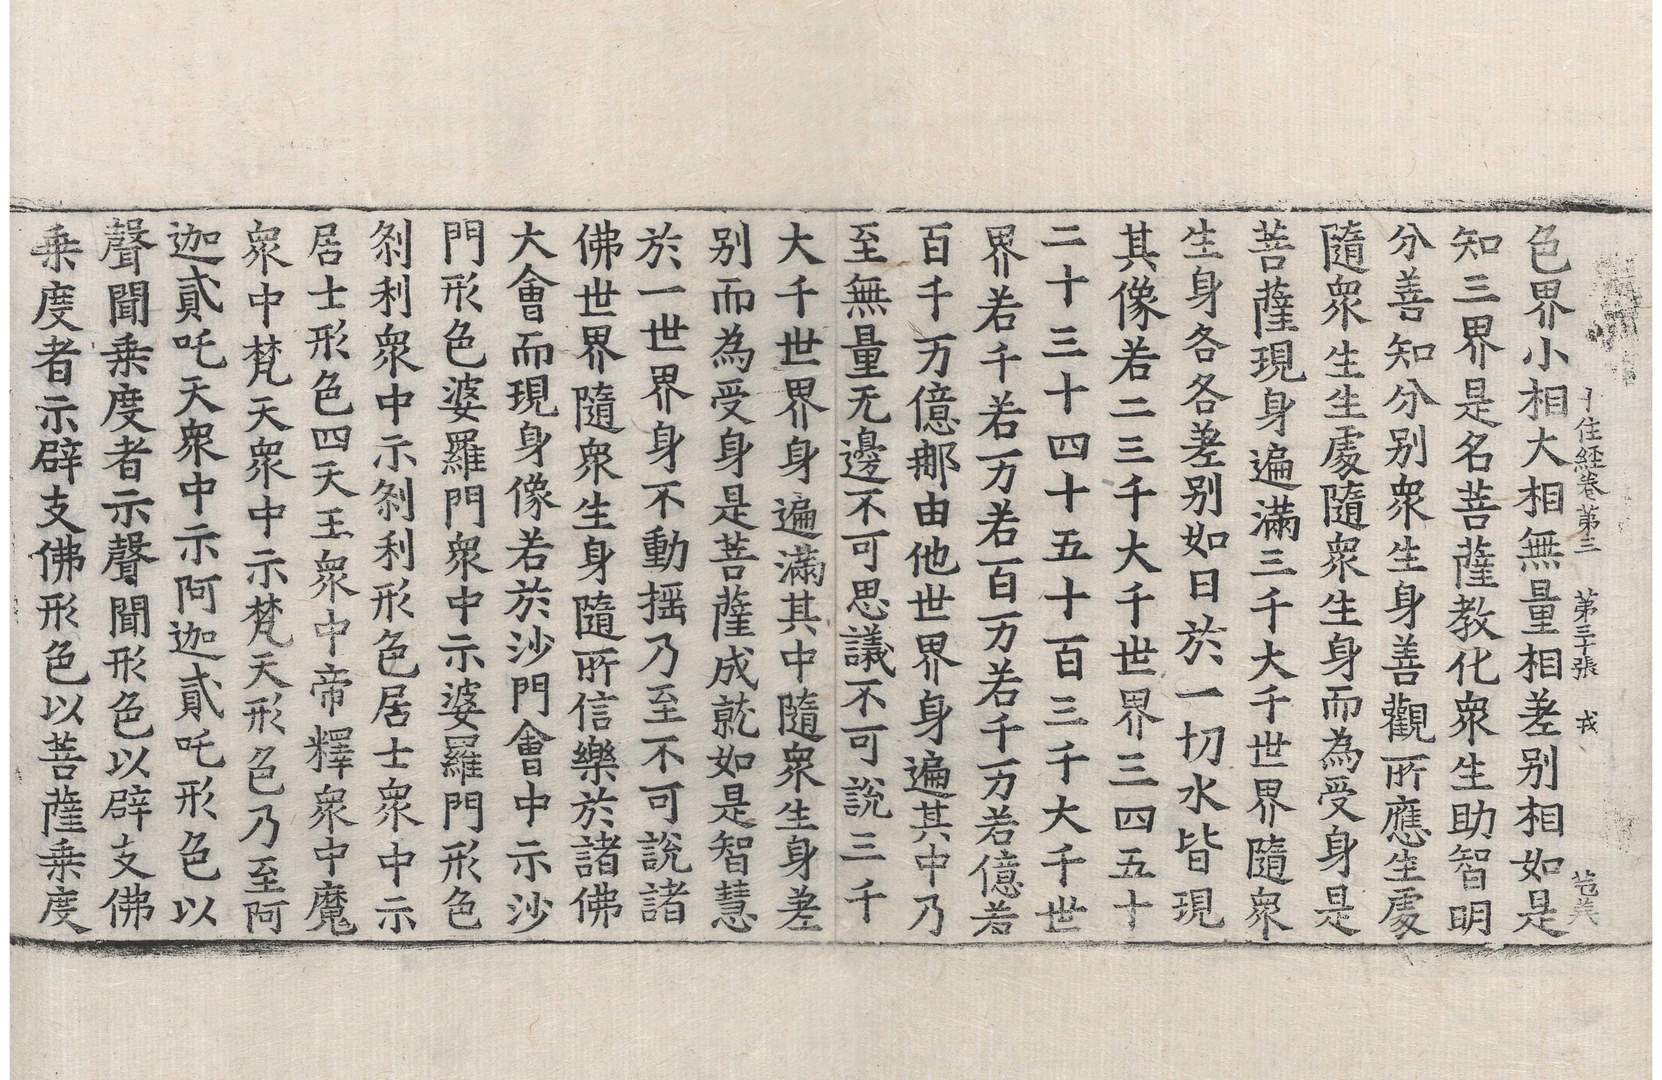 十住經卷第三　第三十張　戎
色界小相大相無量相差別相如是
知三界是名菩薩教化衆生助智明
分善知分别衆生身善觀所應生處
隨衆生生處隨衆生身而為受身是
菩薩現身遍滿三千大千世界隨衆
生身各各差别如日於一切水皆現
其像若二三千大千世界三四五十
二十三十四十五十百三千大千世
界若千若万若百万若千万若億若
百千万億那由他世界身遍其中乃
至無量无邊不可思議不可說三千
大千世界身遍滿其中隨衆生身差
别而為受身是菩薩成就如是智慧
於一世界身不動揺乃至不可說諸
佛世界隨衆生身隨所信樂於諸佛
大會而現身像若於沙門會中示沙
門形色婆羅門衆中示婆羅門形色
刹利衆中示刹利形色居士衆中示
居士形色四天王衆中帝釋衆中魔
衆中梵天衆中示梵天形色乃至阿
迦貳吒天衆中示阿迦貳吒形色以
聲聞乗度者示聲聞形色以辟支佛
乗度者示辟支佛形色以菩薩乗度